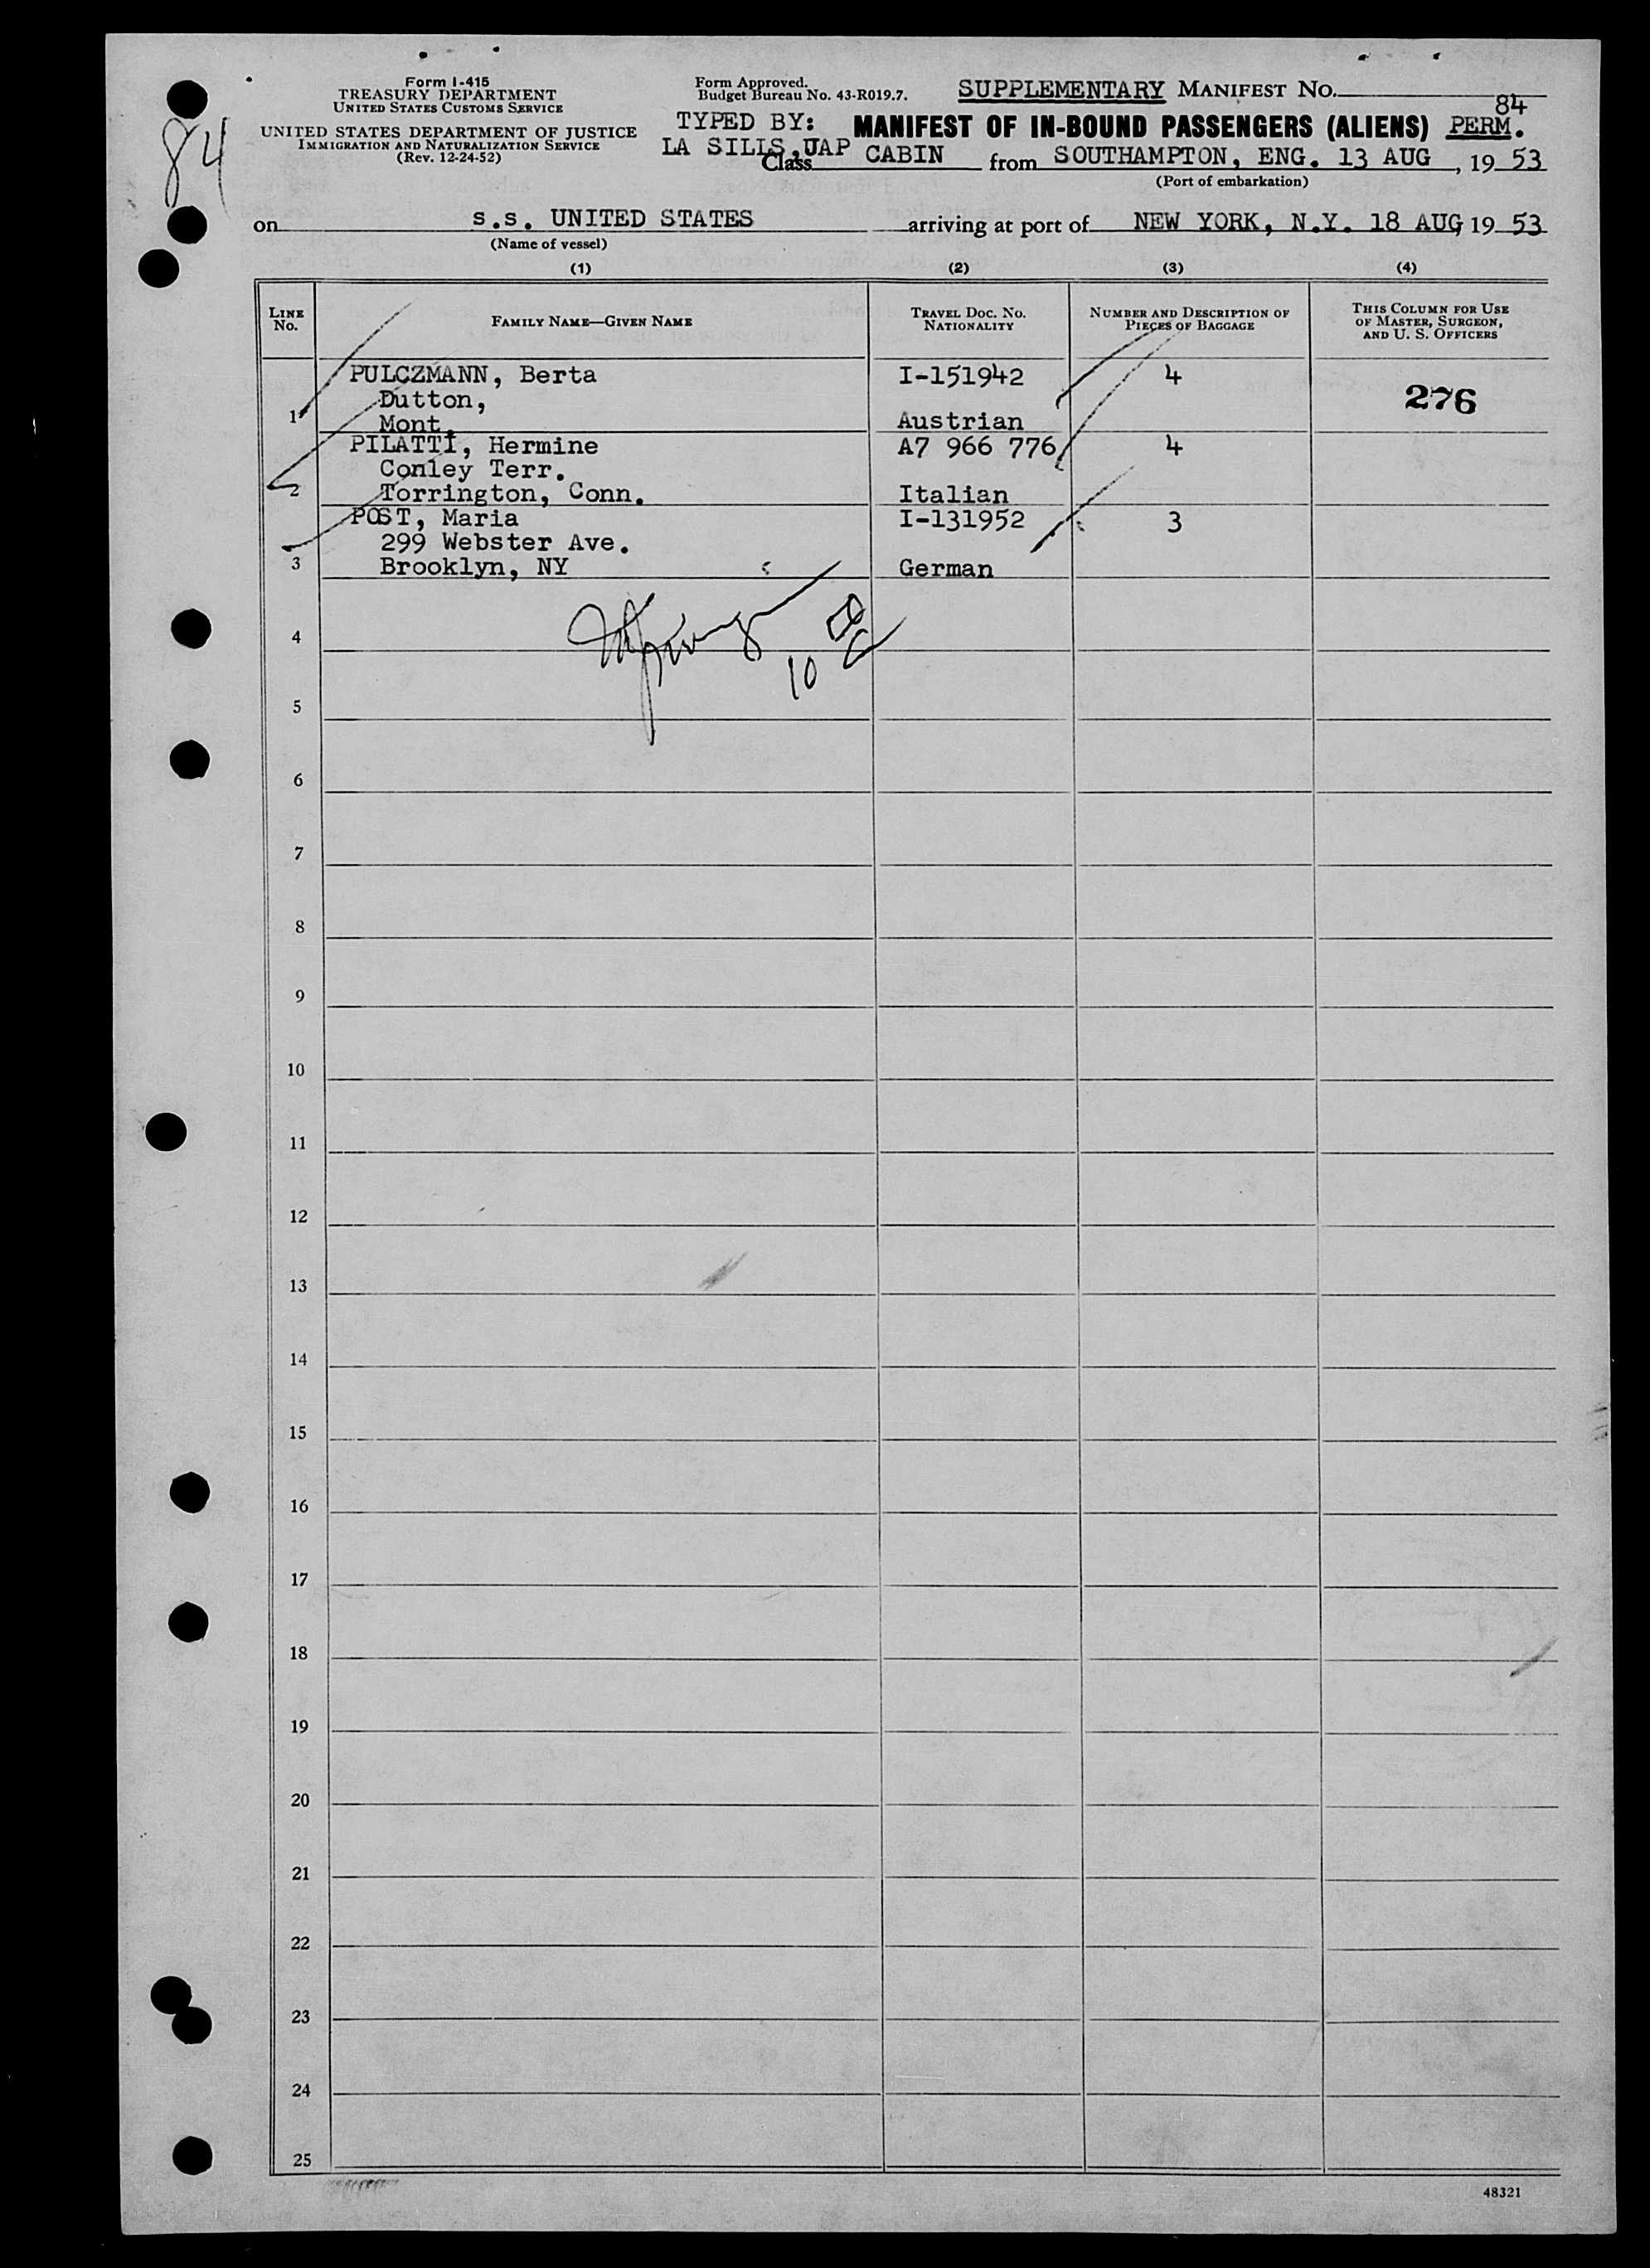 Form I-415
TREASURY DEPARTMENT
UNITED STATES CUSTOMS SERVICE
UNITED STATES DEPARTMENT OF JUSTICE
IMMIGRATION AND NATURALIZATION SERVICE
(Rev. 12-24-52)
Form Approved.
Budget Bureau No. 43-R019.7.
SUPPLEMENTARY MANIFEST No.
84
84
TYPED BY: MANIFEST OF IN-BOUND PASSENGERS (ALIENS) PERM.
LA SILLS, UAP
Class CABIN from SOUTHAMPTON, ENG. 13 AUG, 19 53
(Port of embarkation)
on s.s. UNITED STATES arriving at port of NEW YORK, N.Y. 18 AUG 19 53
(Name of vessel)
(1) (2) (3) (4)
LINE No. FAMILY NAME—GIVEN NAME TRAVEL DOC. NO. NATIONALITY NUMBER AND DESCRIPTION OF PIECES OF BAGGAGE THIS COLUMN FOR USE OF MASTER, SURGEON, AND U. S. OFFICERS
PULCZMANN, Berta I-151942 4
Dutton, 276
1 Mont. Austrian
PILATTI, Hermine A7 966 776 4
Conley Terr.
2 Torrington, Conn. Italian
POST, Maria I-131952 3
299 Webster Ave.
3 Brooklyn, NY German
4
10
5
6
7
8
9
10
11
12
13
14
15
16
17
18
19
20
21
22
23
24
25
48321